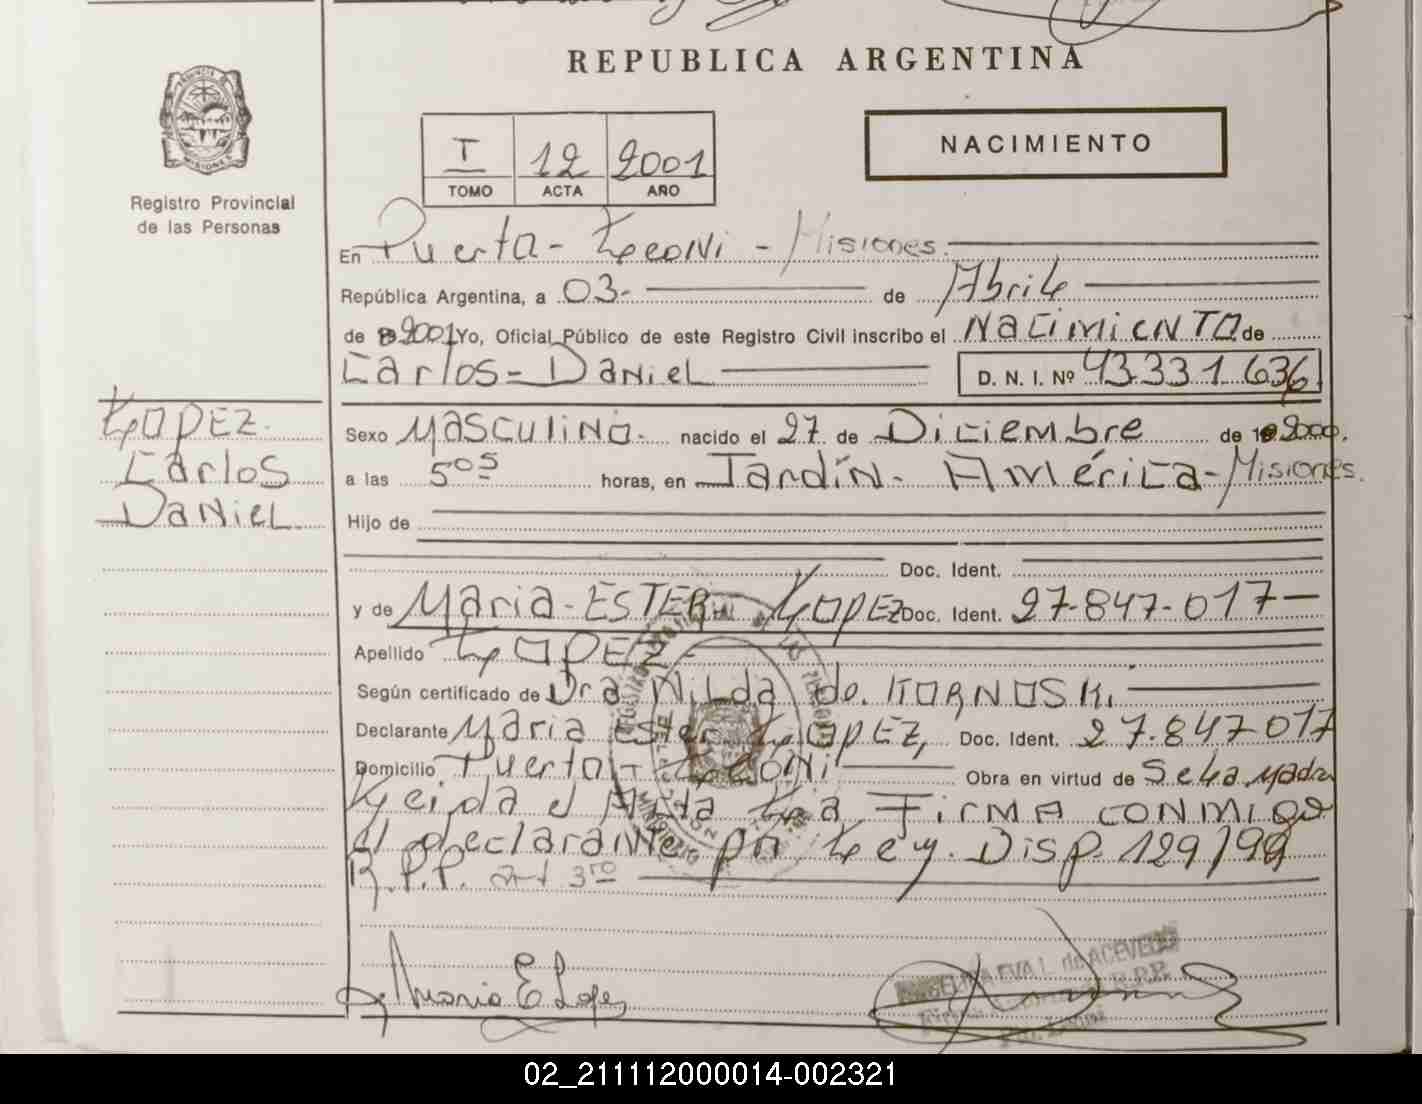 REPUBLICA ARGENTINA
Registro Provincial
de las Personas
I 12 2001
TOMO ACTA AÑO
NACIMIENTO
En Puerto - Leoni - Misiones.
República Argentina, a 03- de Abril
de 2001 Yo, Oficial Público de este Registro Civil inscribo el Nacimiento de
Carlos - Daniel D. N. I. Nº 43.331.636
LOPEZ
Carlos
Daniel
Sexo Masculino. nacido el 27 de Diciembre de 2000.
a las 5 05 horas, en Jardín. América - Misiones.
Hijo de
Doc. Ident.
y de Maria - ESTER LOPEZ Doc. Ident. 27-847-017-
Apellido LOPEZ -
Según certificado de Dra Nilda de. KORNOSKI.
Declarante Maria Ester LOPEZ, Doc. Ident. 27.847-017
Domicilio Puerto - Leoni Obra en virtud de Se La Madre
Leida el Acta La Firma CONMIGO
el declarante por Ley. Disp. 129/99
R.P.P. 3ro
Maria E Lopez
EVA L. de ACEVEDO
02_211112000014-002321